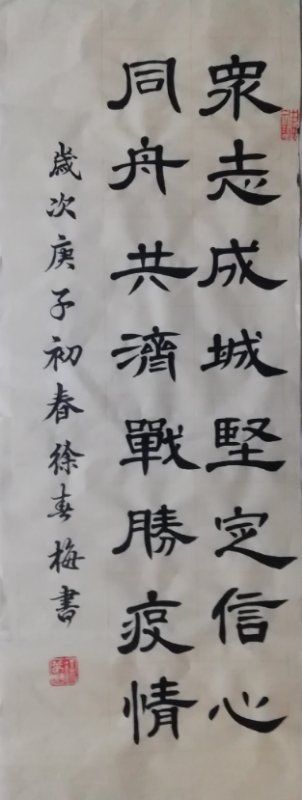 衆志成城堅定信心
同舟共濟戰勝疫情
歲次庚子初春徐春梅書